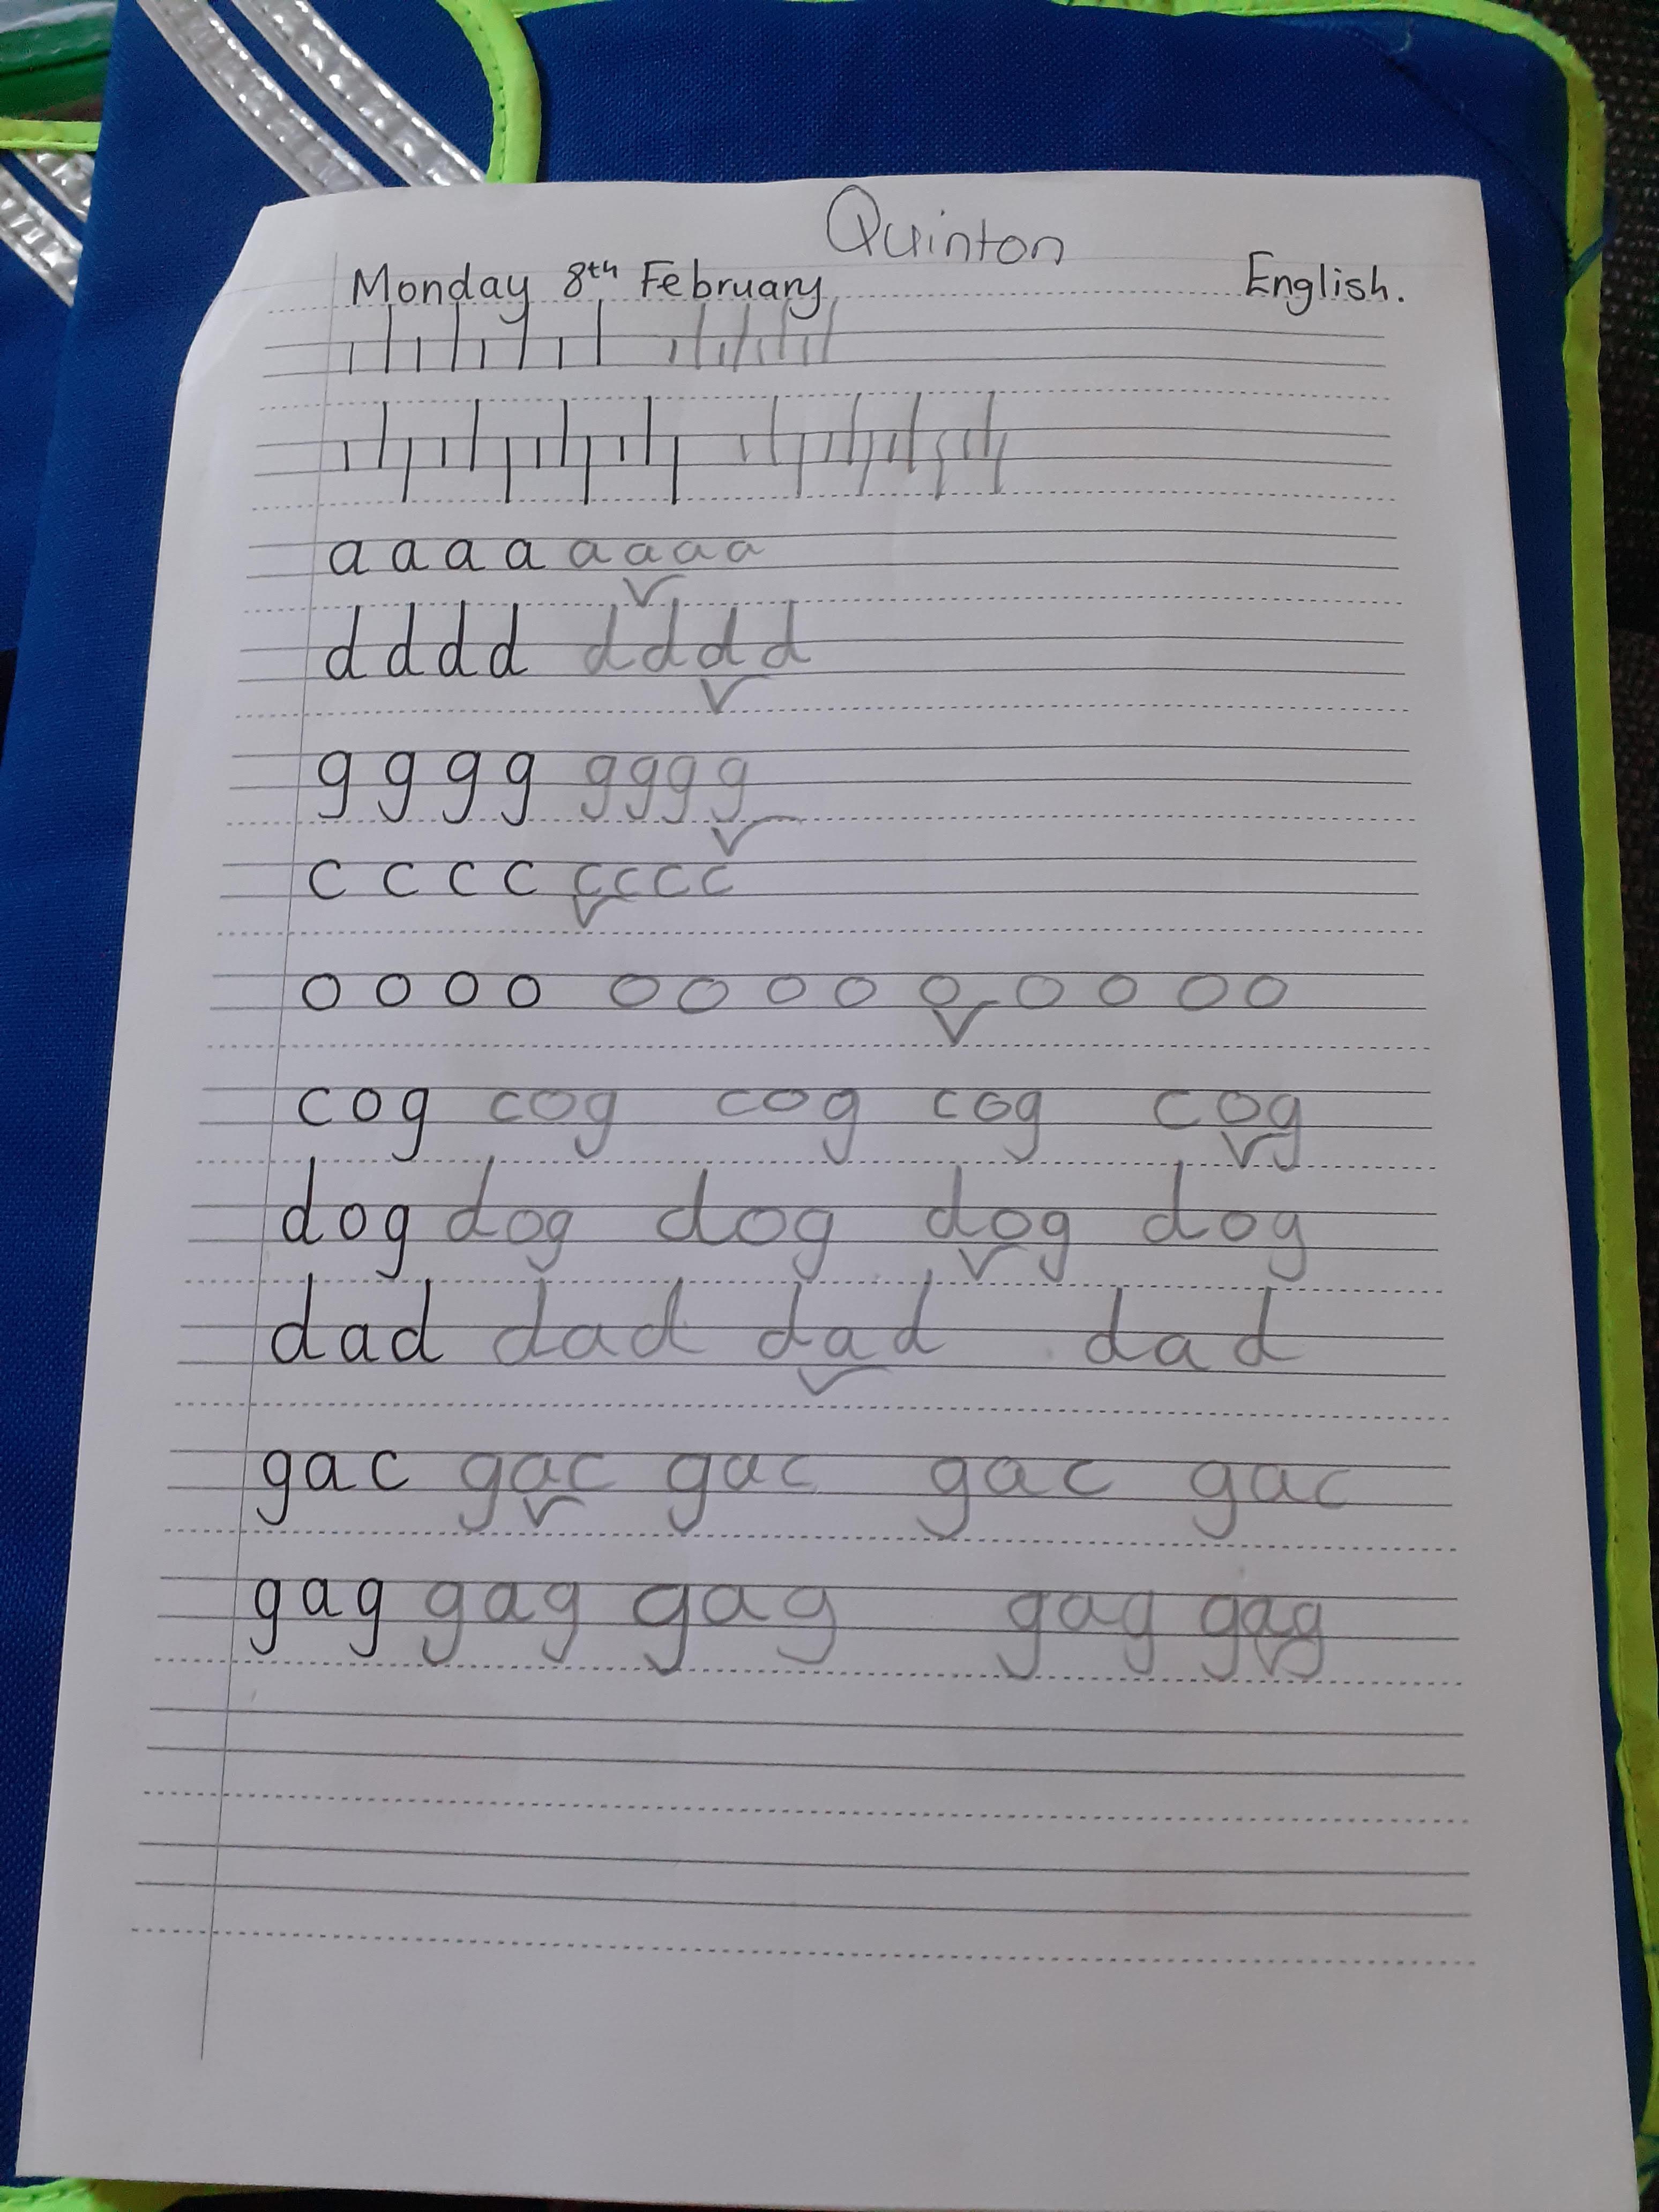 Quinton
Monday 8th February English.
a a a a a a a a
d d d d d d d d
g g g g g g g g
c c c c c c c c
o o o o o o o o o o o o o
cog cog cog cog cog
dog dog dog dog dog
dad dad dad dad
gac gac gac gac gac
gag gag gag gag gag